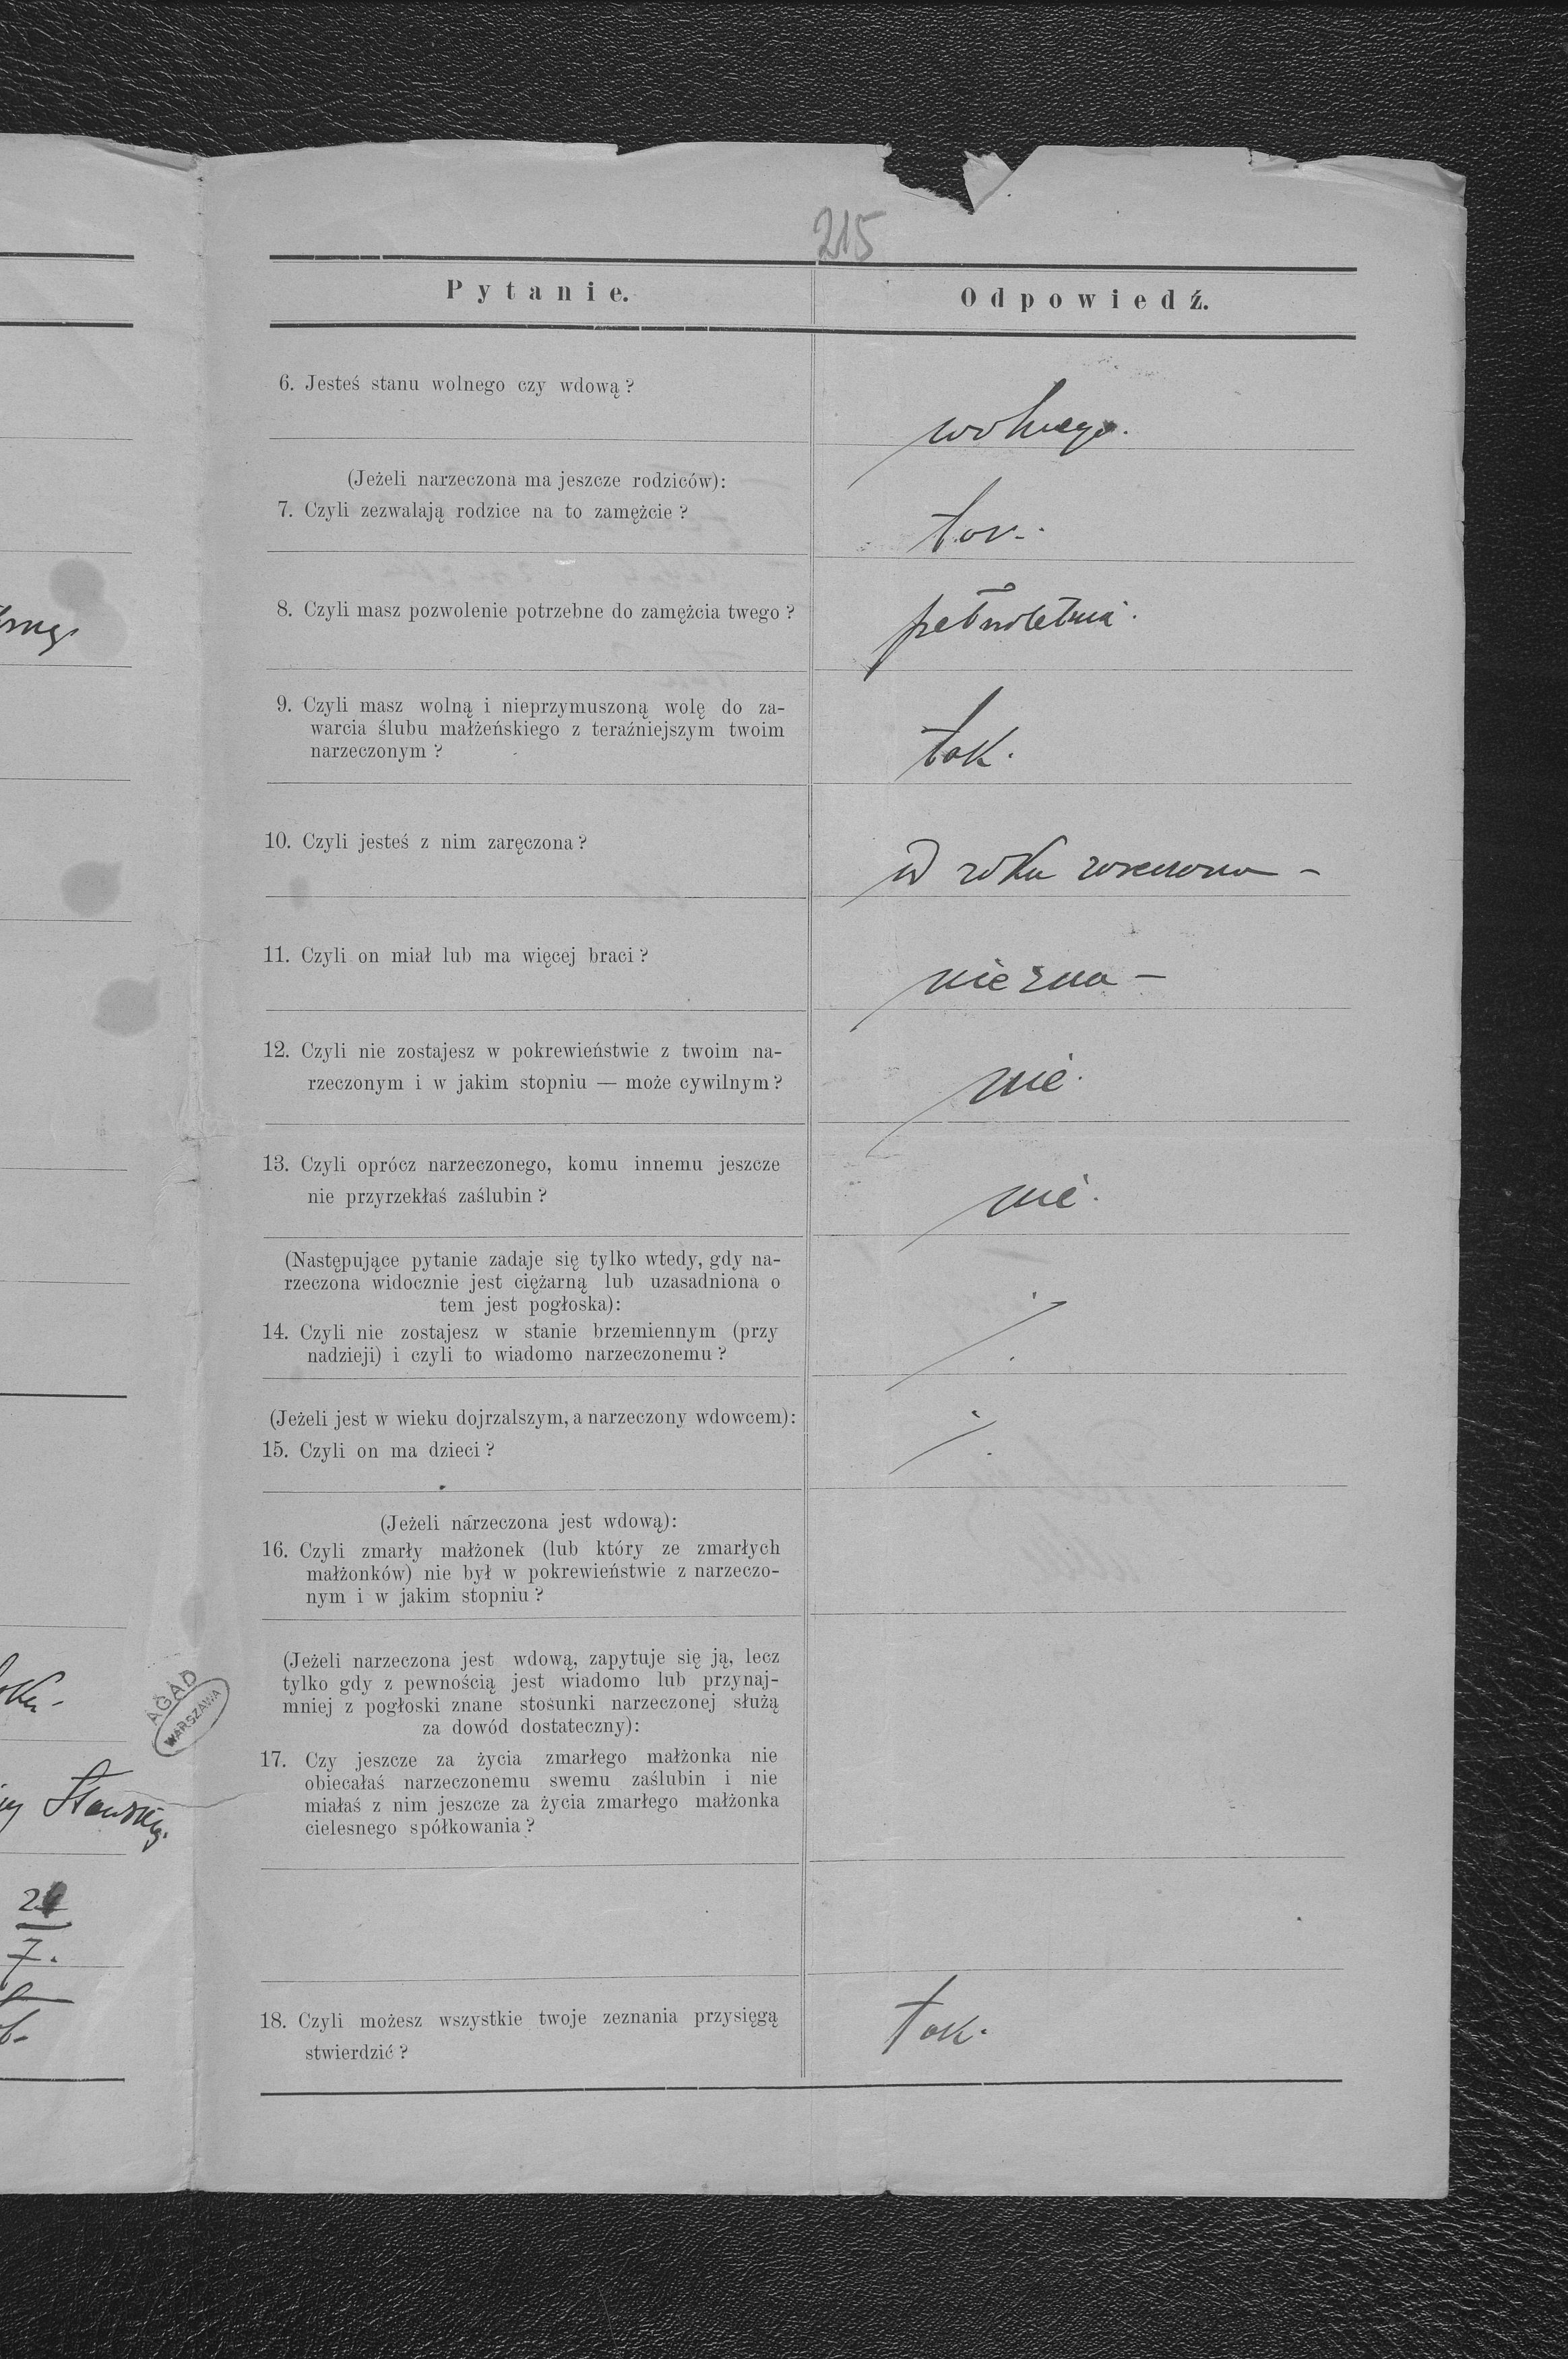 215
Pytanie.
Odpowiedź.
6. Jesteś stanu wolnego czy wdową?
wolnego.
(Jeżeli narzeczona ma jeszcze rodziców):
7. Czyli zezwalają rodzice na to zamężcie?
8. Czyli masz pozwolenie potrzebne do zamężcia twego?
pełnoletnia.
9. Czyli masz wolną i nieprzymuszoną wolę do za-
warcia ślubu małżeńskiego z teraźniejszym twoim
narzeczonym?
tak.
10. Czyli jesteś z nim zaręczona?
w roku
11. Czyli on miał lub ma więcej braci?
nie zna —
12. Czyli nie zostajesz w pokrewieństwie z twoim na-
rzeczonym i w jakim stopniu — może cywilnym?
nie.
13. Czyli oprócz narzeczonego, komu innemu jeszcze
nie przyrzekłaś zaślubin?
nie.
(Następujące pytanie zadaje się tylko wtedy, gdy na-
rzeczona widocznie jest ciężarną lub uzasadniona o
tem jest pogłoska):
14. Czyli nie zostajesz w stanie brzemiennym (przy
nadzieji) i czyli to wiadomo narzeczonemu?
(Jeżeli jest w wieku dojrzalszym, a narzeczony wdowcem):
15. Czyli on ma dzieci?
(Jeżeli narzeczona jest wdową):
16. Czyli zmarły małżonek (lub który ze zmarłych
małżonków) nie był w pokrewieństwie z narzeczo-
nym i w jakim stopniu?
(Jeżeli narzeczona jest wdową, zapytuje się ją, lecz
tylko gdy z pewnością jest wiadomo lub przynaj-
mniej z pogłoski znane stosunki narzeczonej służą
za dowód dostateczny):
17. Czy jeszcze za życia zmarłego małżonka nie
obiecałaś narzeczonemu swemu zaślubin i nie
miałaś z nim jeszcze za życia zmarłego małżonka
cielesnego spółkowania?
18. Czyli możesz wszystkie twoje zeznania przysięgą
stwierdzić?
tak.
AGAD
WARSZAWA
7.